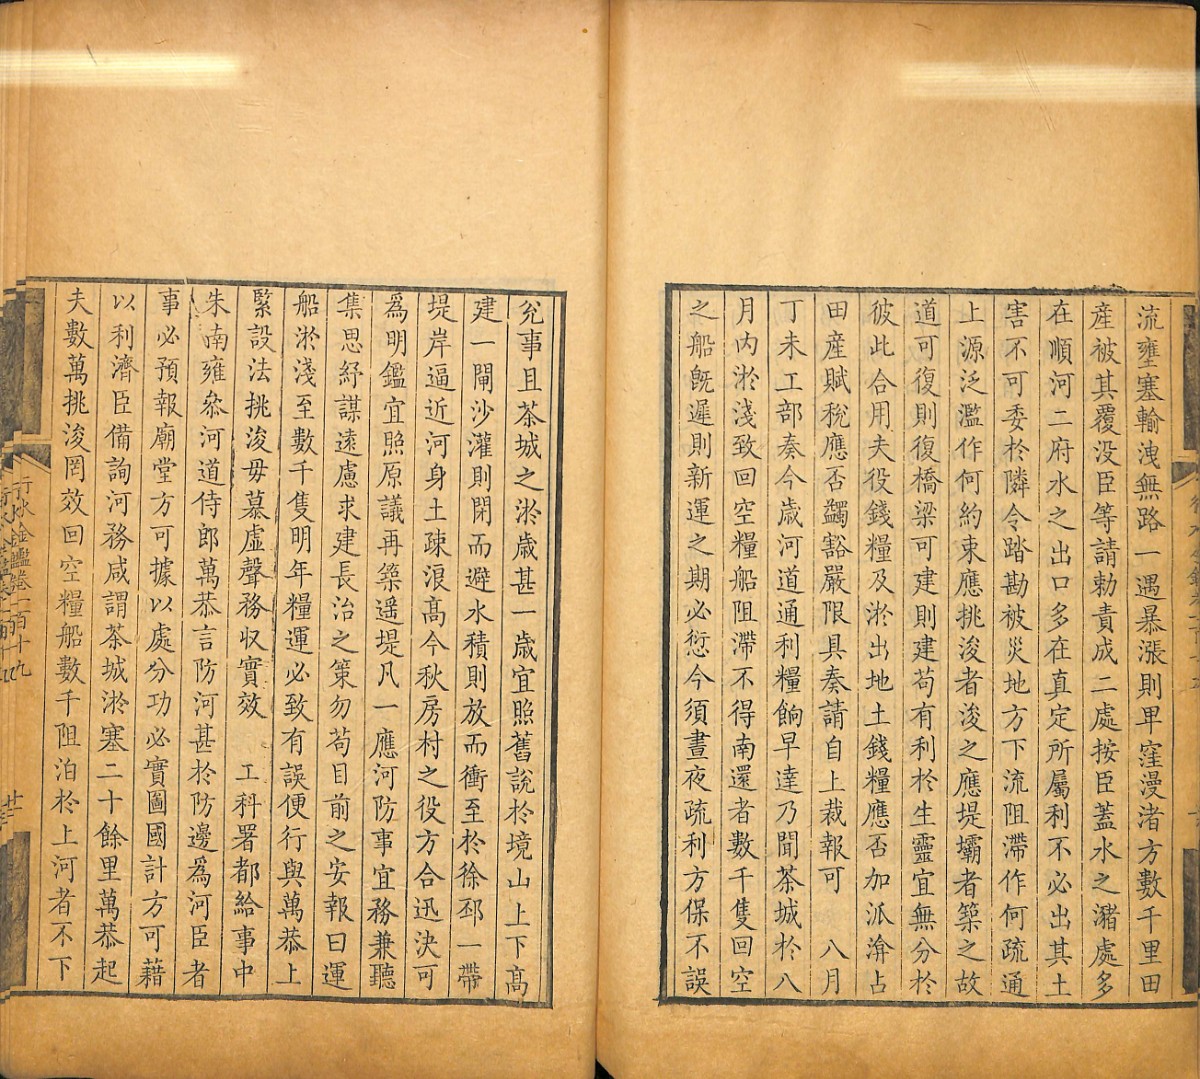 流壅塞輸洩無路一遇暴漲則旱窪漫渚方數千里田
產被其覆没臣等請勅責成二處按臣蓋水之瀦處多
在順河二府水之出口多在真定所屬利不必出其土
害不可委於隣令踏勘被災地方下流阻滯作何疏通
上源泛濫作何約束應挑浚者浚之應堤壩者築之故
道可復則復橋梁可建則建苟有利於生靈宜無分於
彼此合用夫役錢糧及淤出地土錢糧應否加派滸占
田產賦稅應否蠲豁嚴限具奏請自上裁報可　八月
丁未工部奏今歲河道通利糧餉早達乃聞茶城於八
月内淤淺致回空糧船阻滯不得南還者數千隻回空
之船旣遲則新運之期必愆今須晝夜疏利方保不誤
兊事且茶城之淤歲甚一歲宜照舊說於境山上下髙
建一閘沙灌則閉而避水積則放而衝至於徐邳一帶
堤岸逼近河身土疎浪髙今秋房村之役方合迅決可
爲明鑑宜照原議再築遥堤凡一應河防事宜務兼聽
集思紓謀遠慮求建長治之策勿苟目前之安報曰運
船淤淺至數千隻明年糧運必致有誤便行與萬恭上
緊設法挑浚毋慕虛聲務収實效　工科署都給事中
朱南雍叅河道侍郎萬恭言防河甚於防邊爲河臣者
事必預報廟堂方可據以處分功必實圖國計方可藉
以利濟臣備詢河務咸謂茶城淤塞二十餘里萬恭起
夫數萬挑浚罔效回空糧船數千阻泊於上河者不下
行水金鑑卷一百十九
廿三